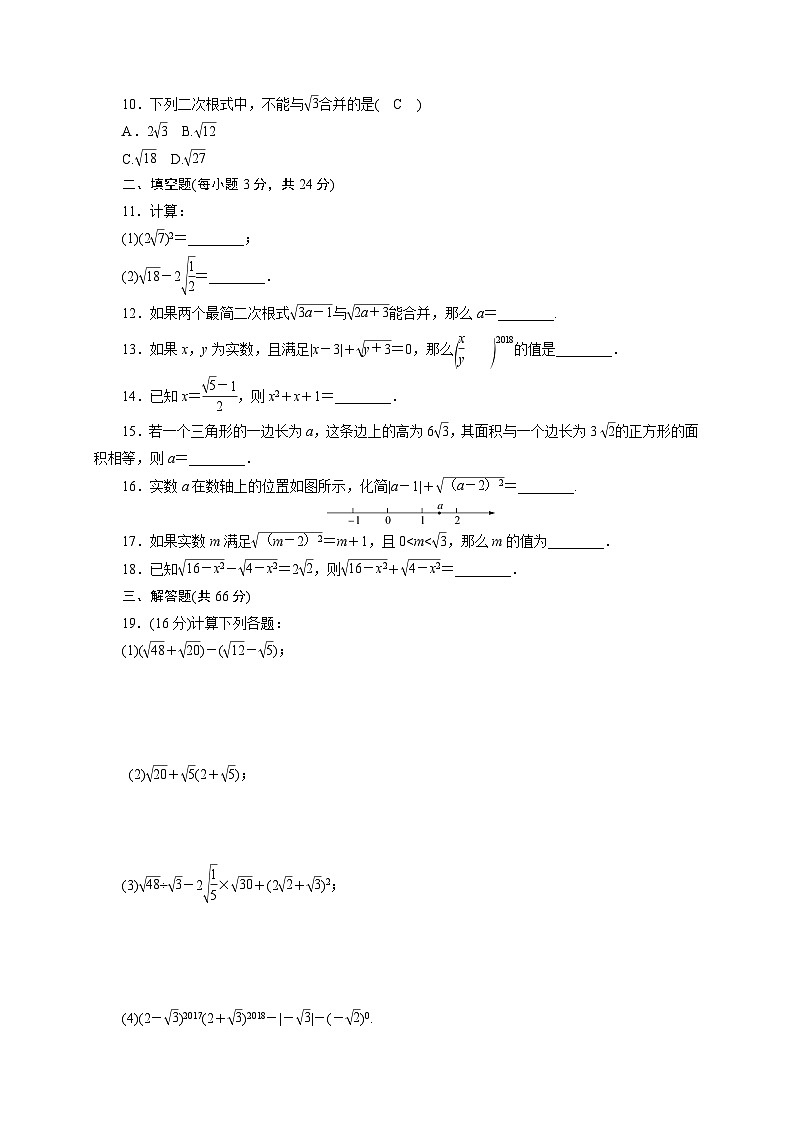 10．下列二次根式中，不能与√3合并的是(　C　)
A．2√3　B.√12
C.√18　D.√27
二、填空题(每小题 3 分，共 24 分)
11．计算：
(1)(2√7)²＝________；
(2)√18－2√(1/2)＝________．
12．如果两个最简二次根式√(3a－1)与√(2a＋3)能合并，那么 a＝________.
13．如果 x，y 为实数，且满足|x－3|＋√(y＋3)＝0，那么(x/y)²⁰¹⁸的值是________．
14．已知 x＝(√5－1)/2，则 x²＋x＋1＝________．
15．若一个三角形的一边长为 a，这条边上的高为 6√3，其面积与一个边长为 3 √2的正方形的面
积相等，则 a＝________．
16．实数 a 在数轴上的位置如图所示，化简|a－1|＋√(（a－2）²)＝________.
a
－1　0　1　2
17．如果实数 m 满足√(（m－2）²)＝m＋1，且 0<m<√3，那么 m 的值为________．
18．已知√(16－x²)－√(4－x²)＝2√2，则√(16－x²)＋√(4－x²)＝________．
三、解答题(共 66 分)
19．(16 分)计算下列各题：
(1)(√48＋√20)－(√12－√5)；
(2)√20＋√5(2＋√5)；
(3)√48÷√3－2√(1/5)×√30＋(2√2＋√3)²；
(4)(2－√3)²⁰¹⁷(2＋√3)²⁰¹⁸－|－√3|－(－√2)⁰.